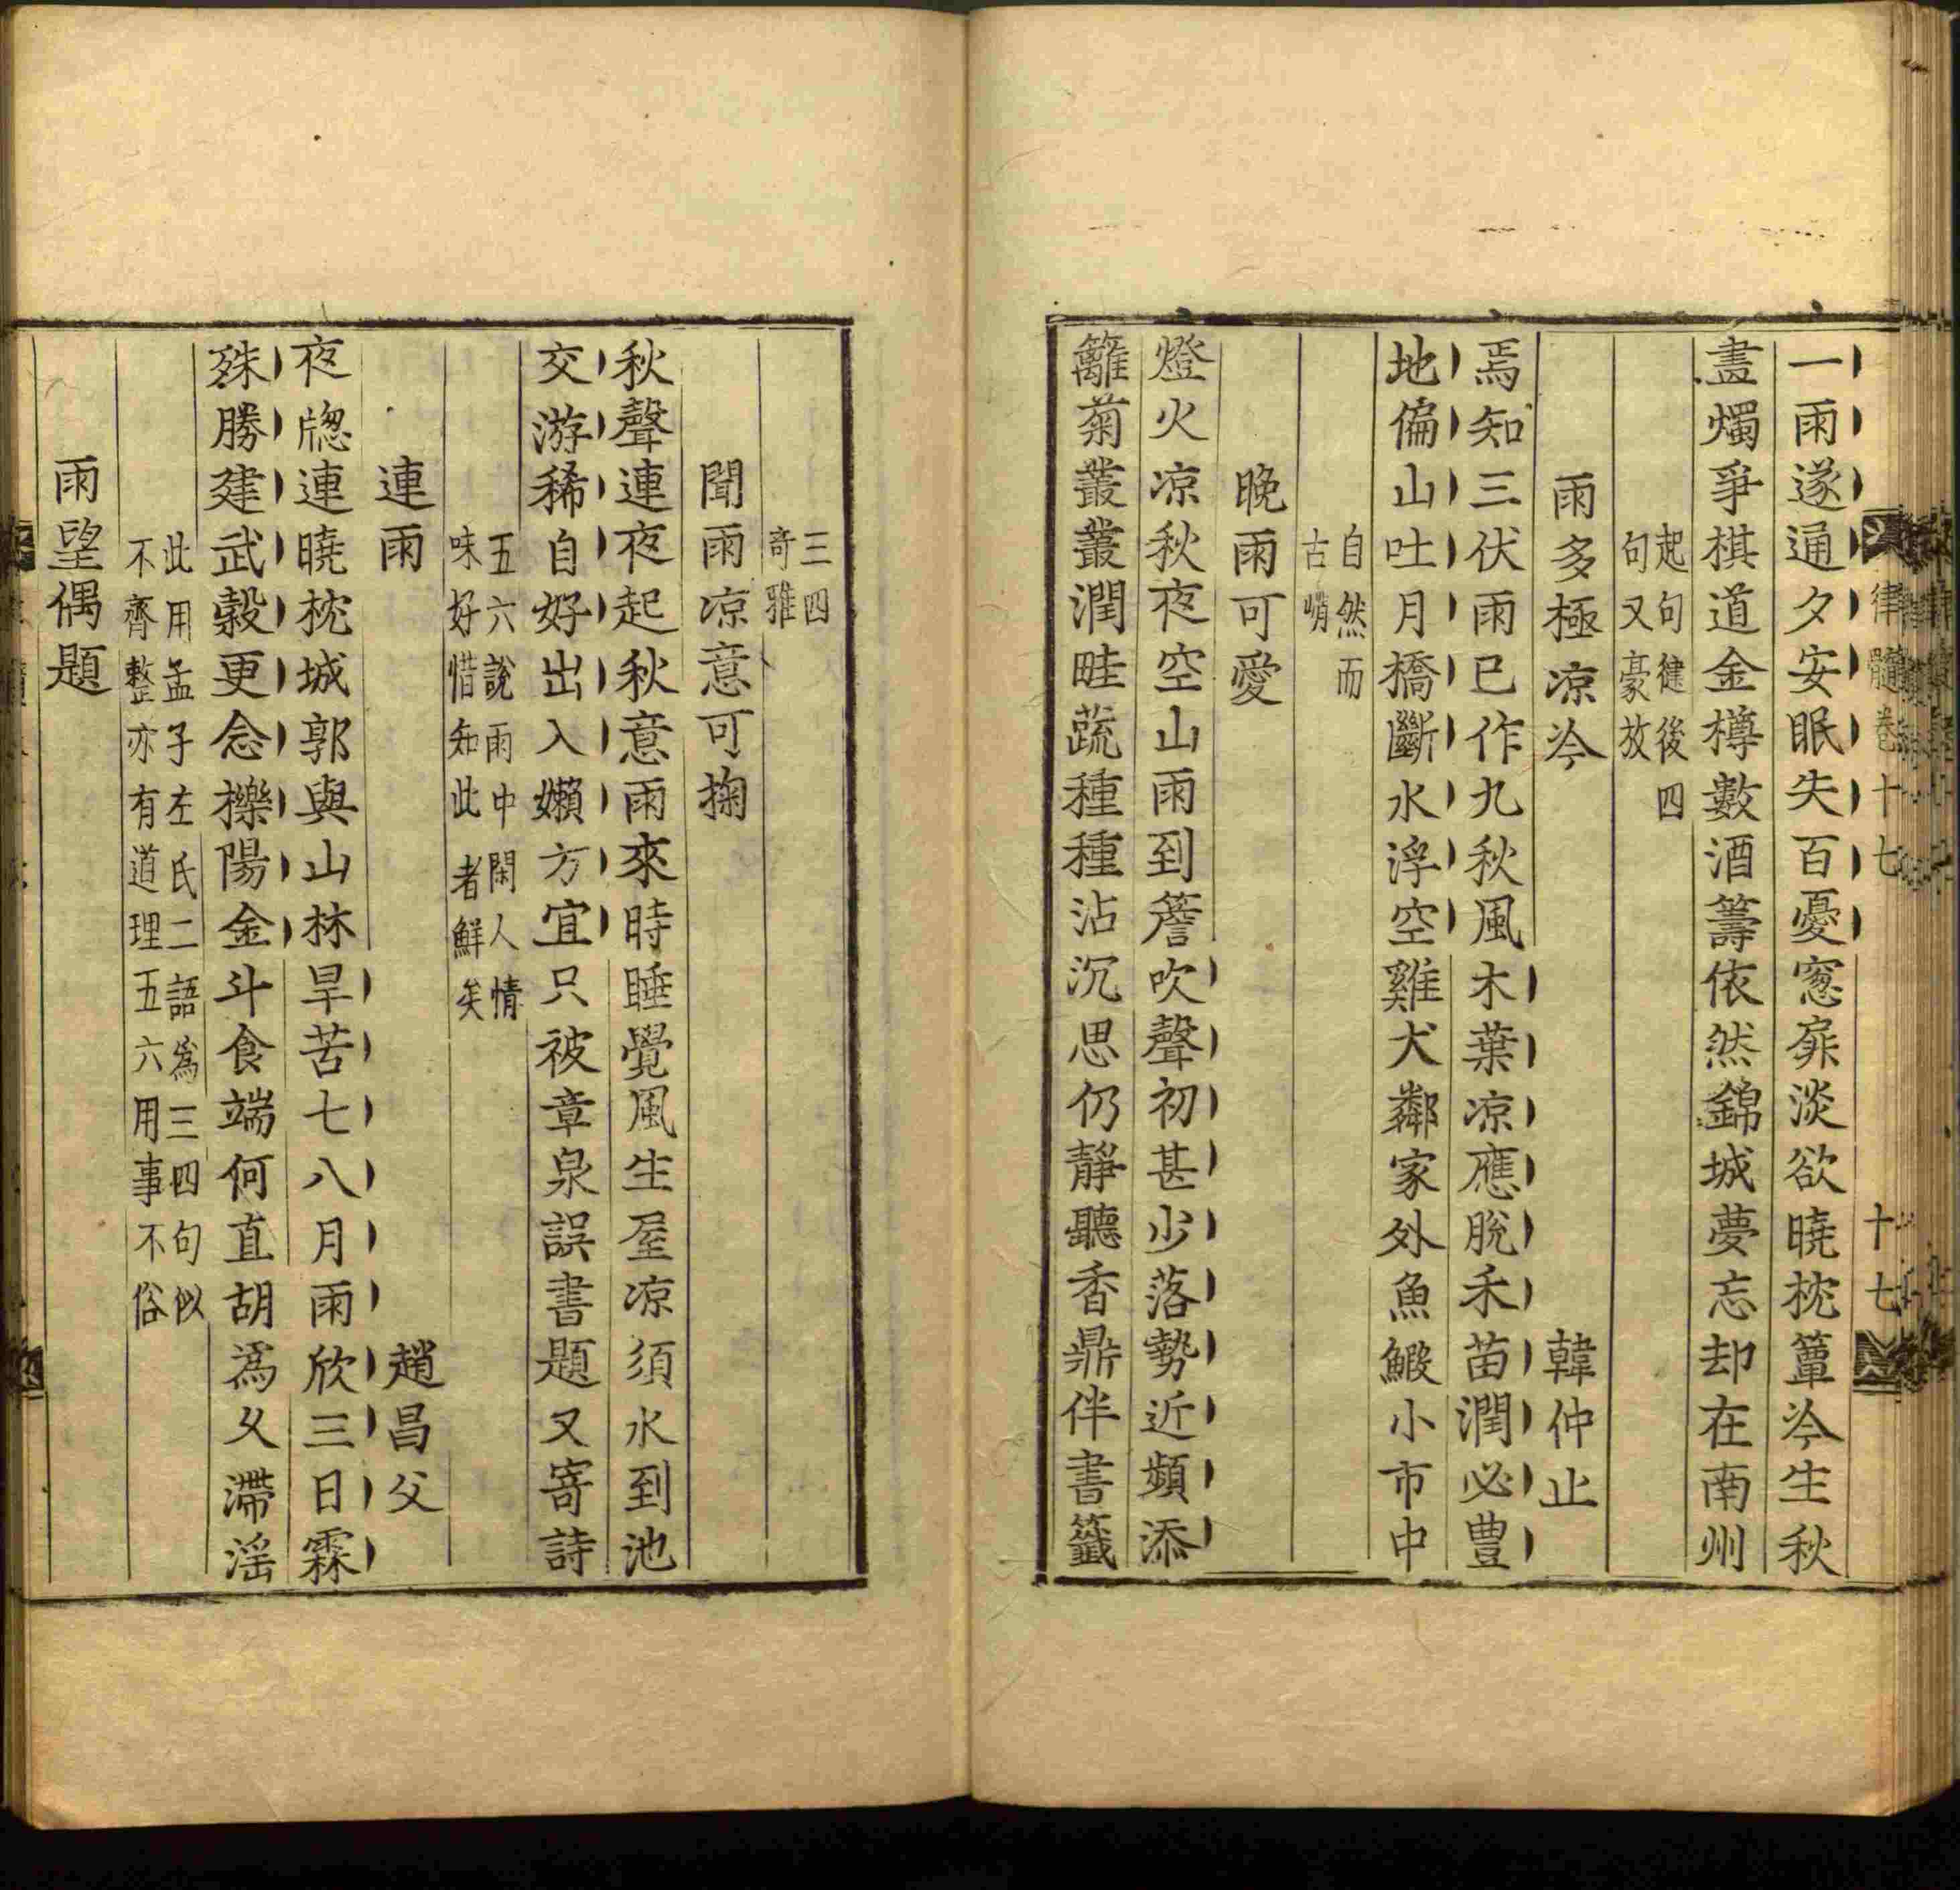 律髓卷十七 十七
一雨遂通夕安眠失百憂窓扉淡欲曉枕簟冷生秋
畫燭爭棋道金樽數酒籌依然錦城夢忘却在南州
起句健後四
句又豪放
雨多極凉冷 韓仲止
焉知三伏雨已作九秋風木葉凉應脫禾苗潤必豊
地偏山吐月橋斷水浮空雞犬鄰家外魚鰕小市中
自然而
古峭
晚雨可愛
燈火凉秋夜空山雨到簷吹聲初甚少落勢近頻添
籬菊叢叢潤畦蔬種種沾沉思仍靜聽香鼎伴書籤
三四
奇雅
聞雨凉意可掬
秋聲連夜起秋意雨來時睡覺風生屋凉須水到池
交游稀自好出入嬾方宜只被章泉誤書題又寄詩
五六說雨中閑人情
味好惜知此者鮮矣
連雨 趙昌父
夜牕連曉枕城郭與山林旱苦七八月雨欣三日霖
殊勝建武穀更念櫟陽金斗食端何直胡爲久滯滛
此用孟子左氏二語爲三四句似
不齊整亦有道理五六用事不俗
雨望偶題